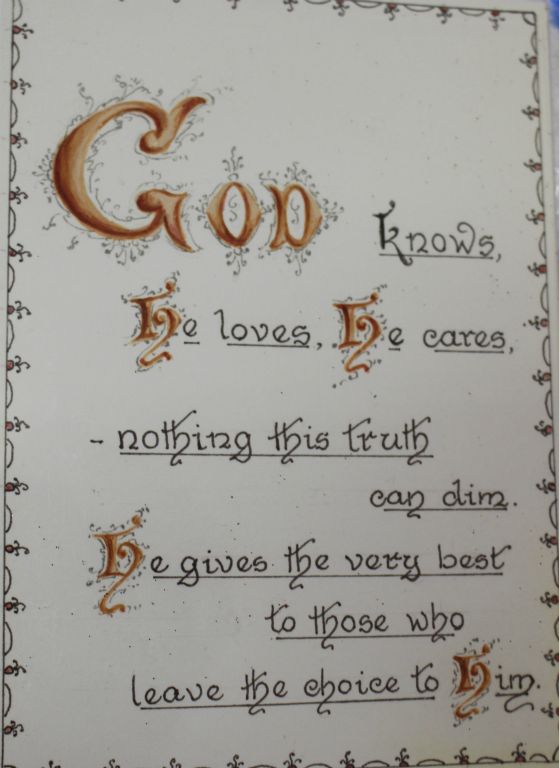 God knows,
He loves, He cares,
- nothing this truth
can dim.
He gives the very best
to those who
leave the choice to Him.